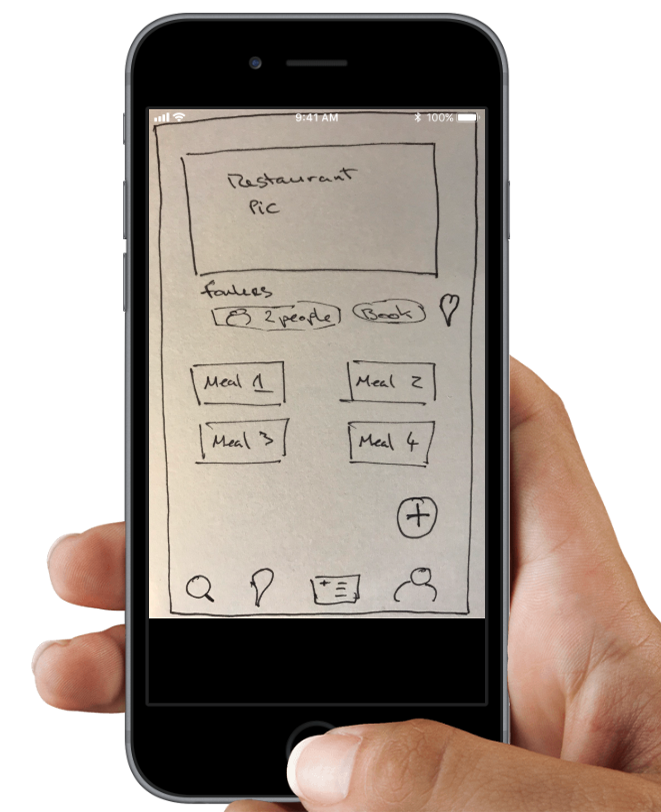 9:41 AM 100%
Restaurant
Pic
2 people Book
Meal 1 Meal 2
Meal 3 Meal 4